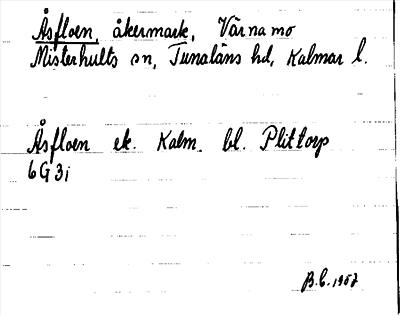 Åsfloen, åkermark, Värnamo
Misterhults sn, Tunaläns hd, Kalmar l.
Åsfloen ek. Kalm. bl. Plittorp
6G3i
B.C. 1957